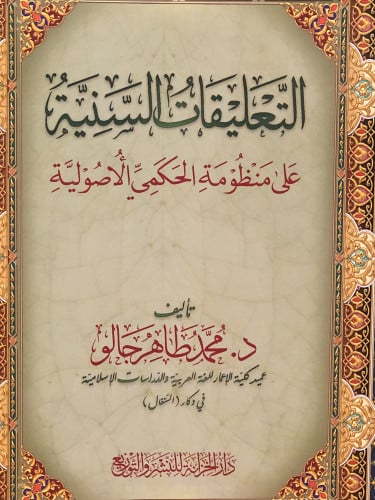 التَّعْلِيقَاتُ السَّنِيَّةُ
عَلَى مَنْظُومَةِ الحَكَمِيِّ الأُصُولِيَّةِ
تأليف
د. مُحَمَّد طَاهِر جَالو
عميد كلية الإعمار للغة العربية والدراسات الإسلامية
في دكار (السنغال)
دَارُ الخِزَانَةِ لِلنَّشْرِ وَالتَّوْزِيعِ